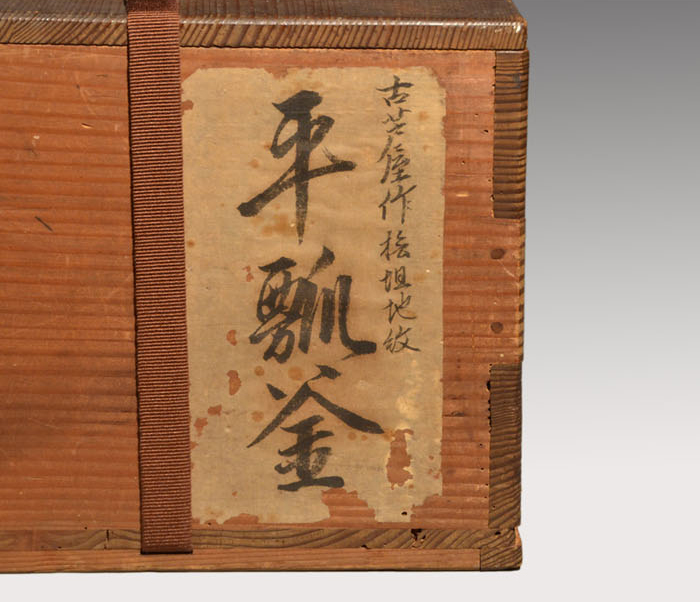 古芦屋作桧垣地紋
平瓢釜